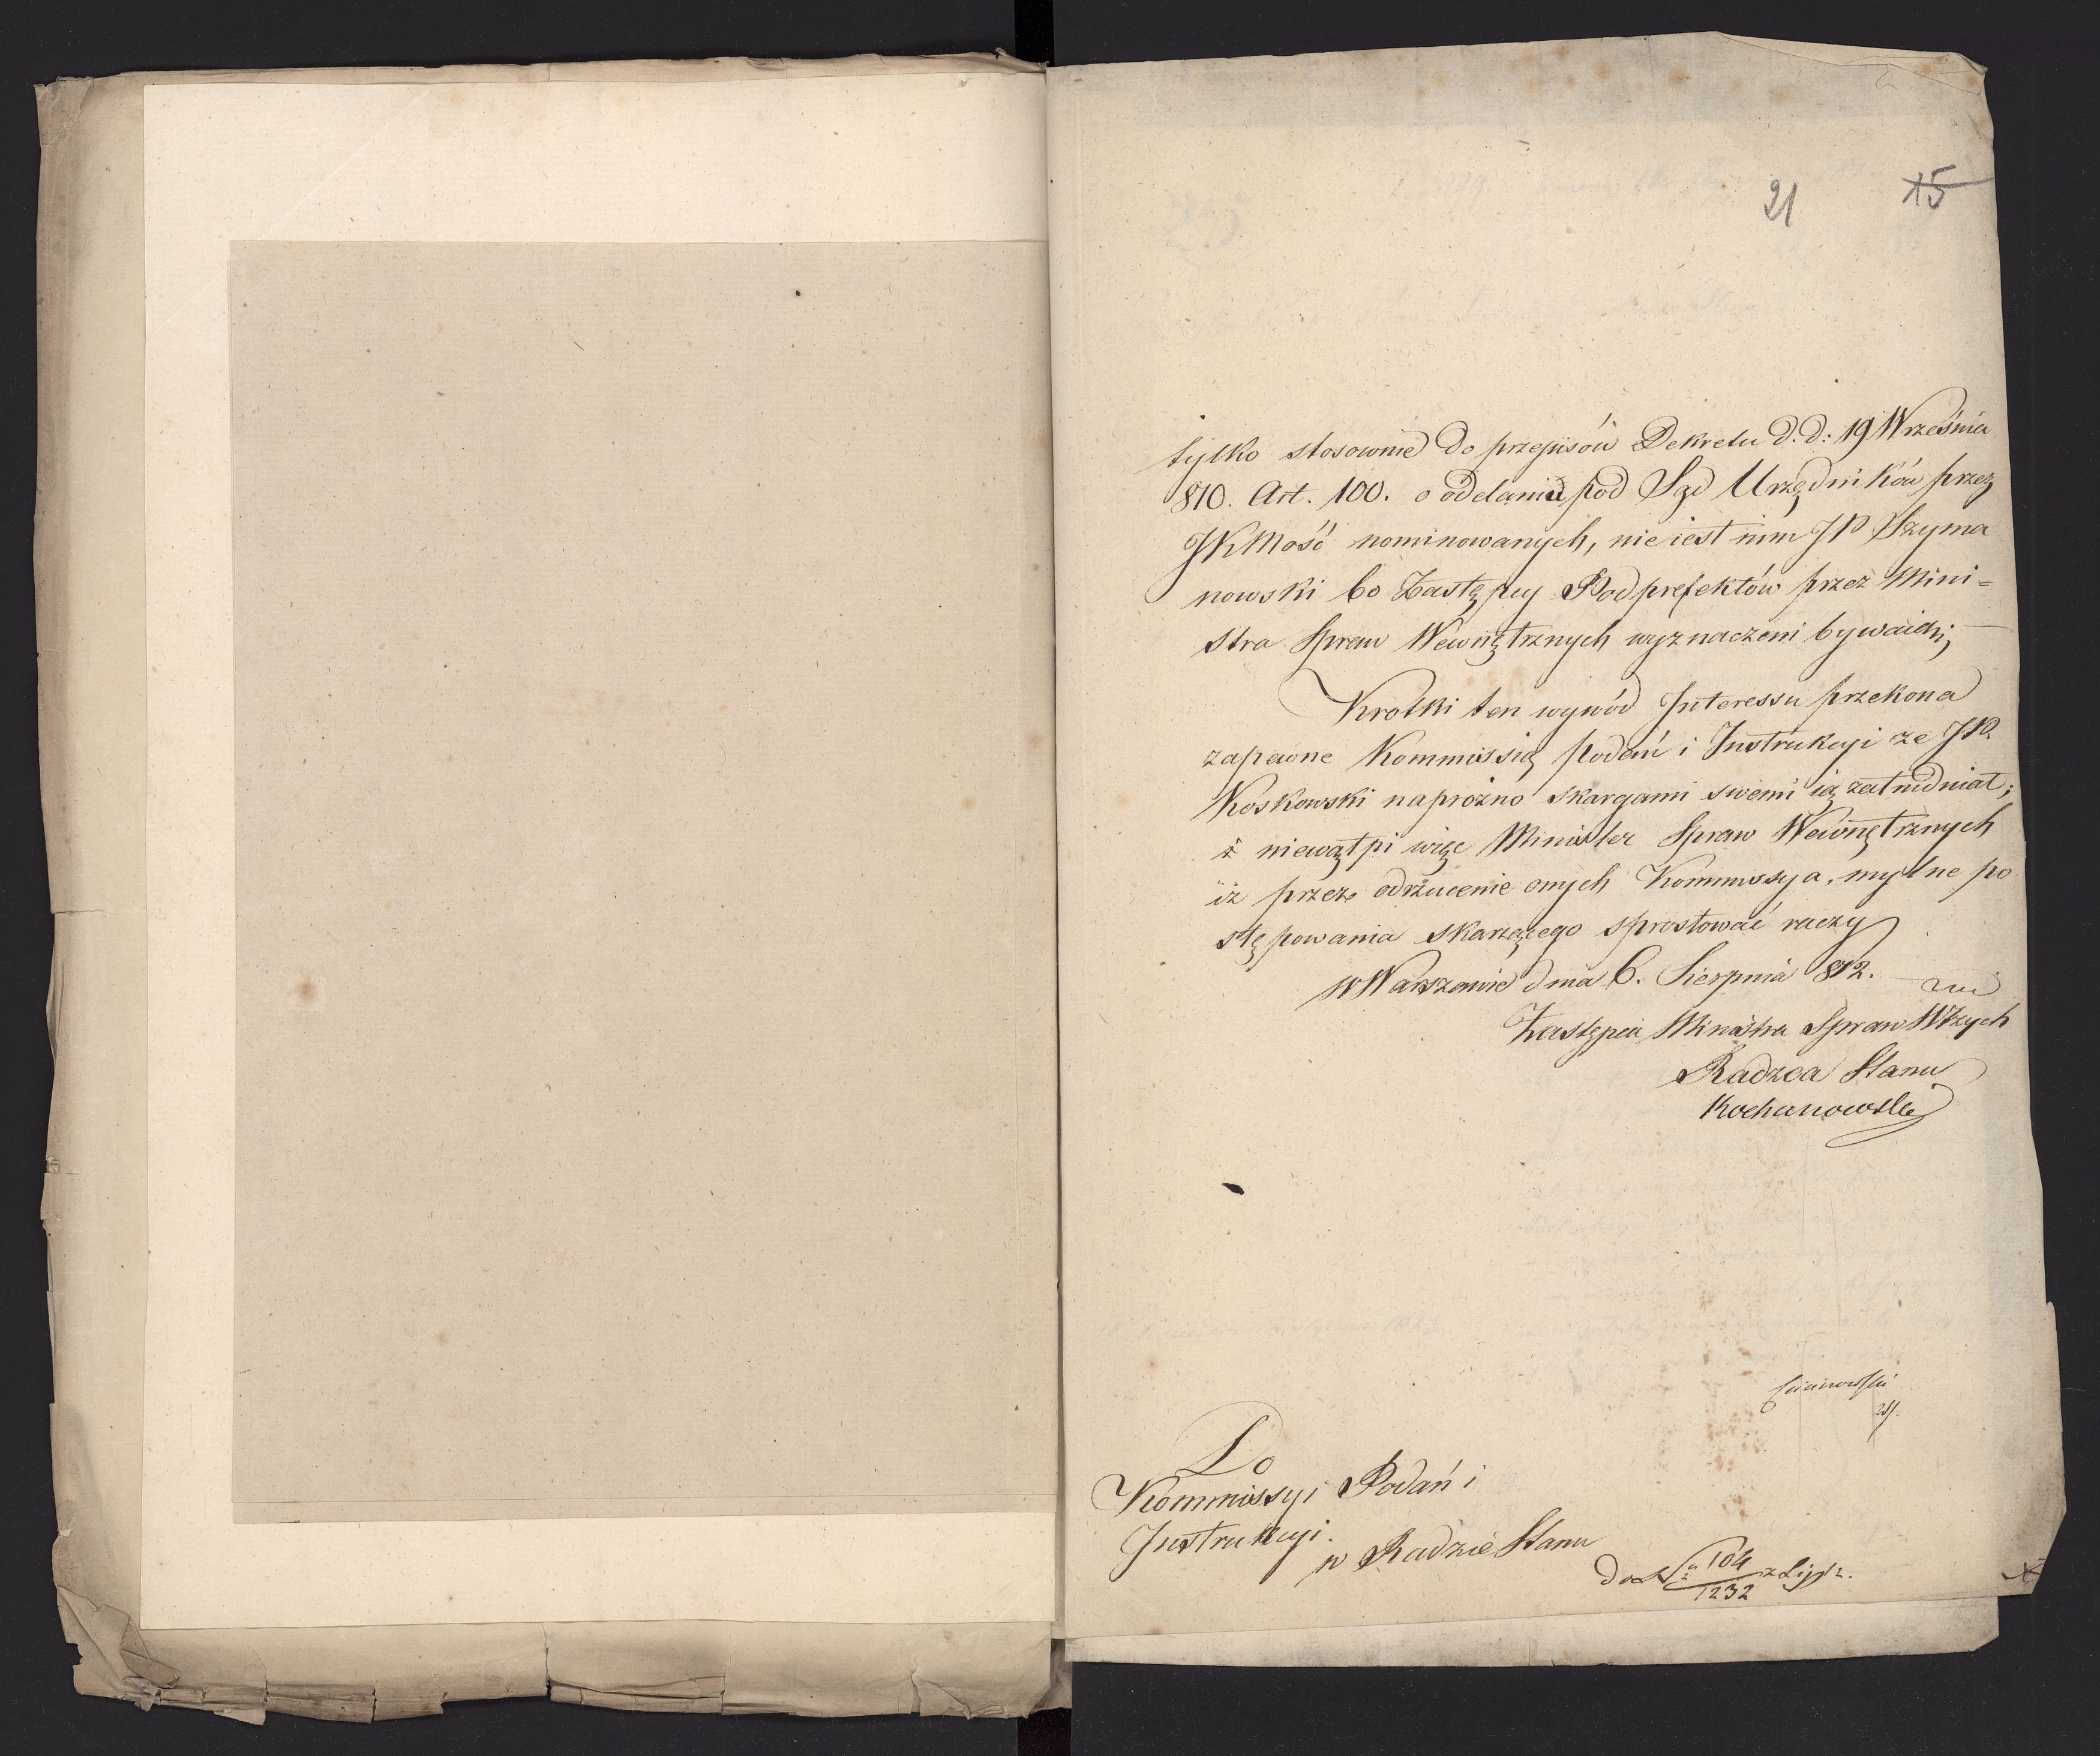 21 15
tylko stosownie do przepisów Dekretu d. d: 19 Września
810. Art. 100. o oddaniu pod Sąd Urzędników przez
JKMość nominowanych, nie iest nim JP Szyma
nowski bo Zastępcy Podprefektów przez Mini=
stra Spraw Wewnętrznych wyznaczeni bywaią;
Krotki ten wywód Interessu przekona
zapewne Kommissią Podań i Instrukcyi ze JP.
Koskowski naprożno skargami swemi ią zatrudniał;
niewątpi więc Minister Spraw Wewnętrznych
iż przez odrzucenie onych Kommissya, mylne po
stępowania skarzącego sprostować raczy
w Warszawie dnia 6. Sierpnia 812.
Zastępca Ministra Spraw Wtrzych
Radzca Stanu
Kochanowski
Do
Kommissyi Podań i
Instrukcyi.
w Radzie Stanu
do 104
1232